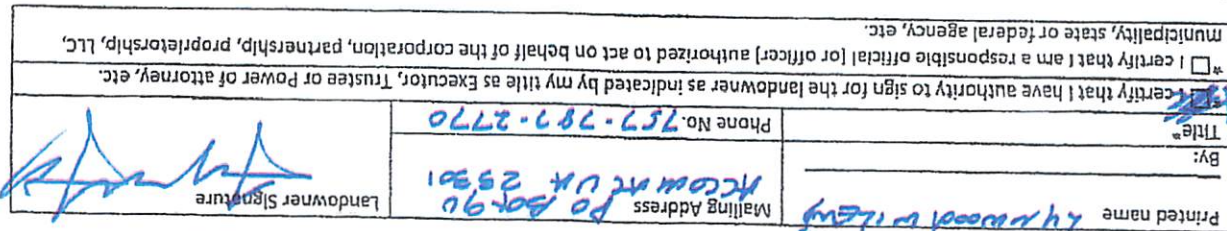 Printed name Lynwood Wilkins Mailing Address PO Box 90 Landowner Signature
Accomac VA 23301
By:
Title* Phone No. 757-787-2770
*☐ I certify that I have authority to sign for the landowner as indicated by my title as Executor, Trustee or Power of attorney, etc.
*☐ I certify that I am a responsible official [or officer] authorized to act on behalf of the corporation, partnership, proprietorship, LLC,
municipality, state or federal agency, etc.